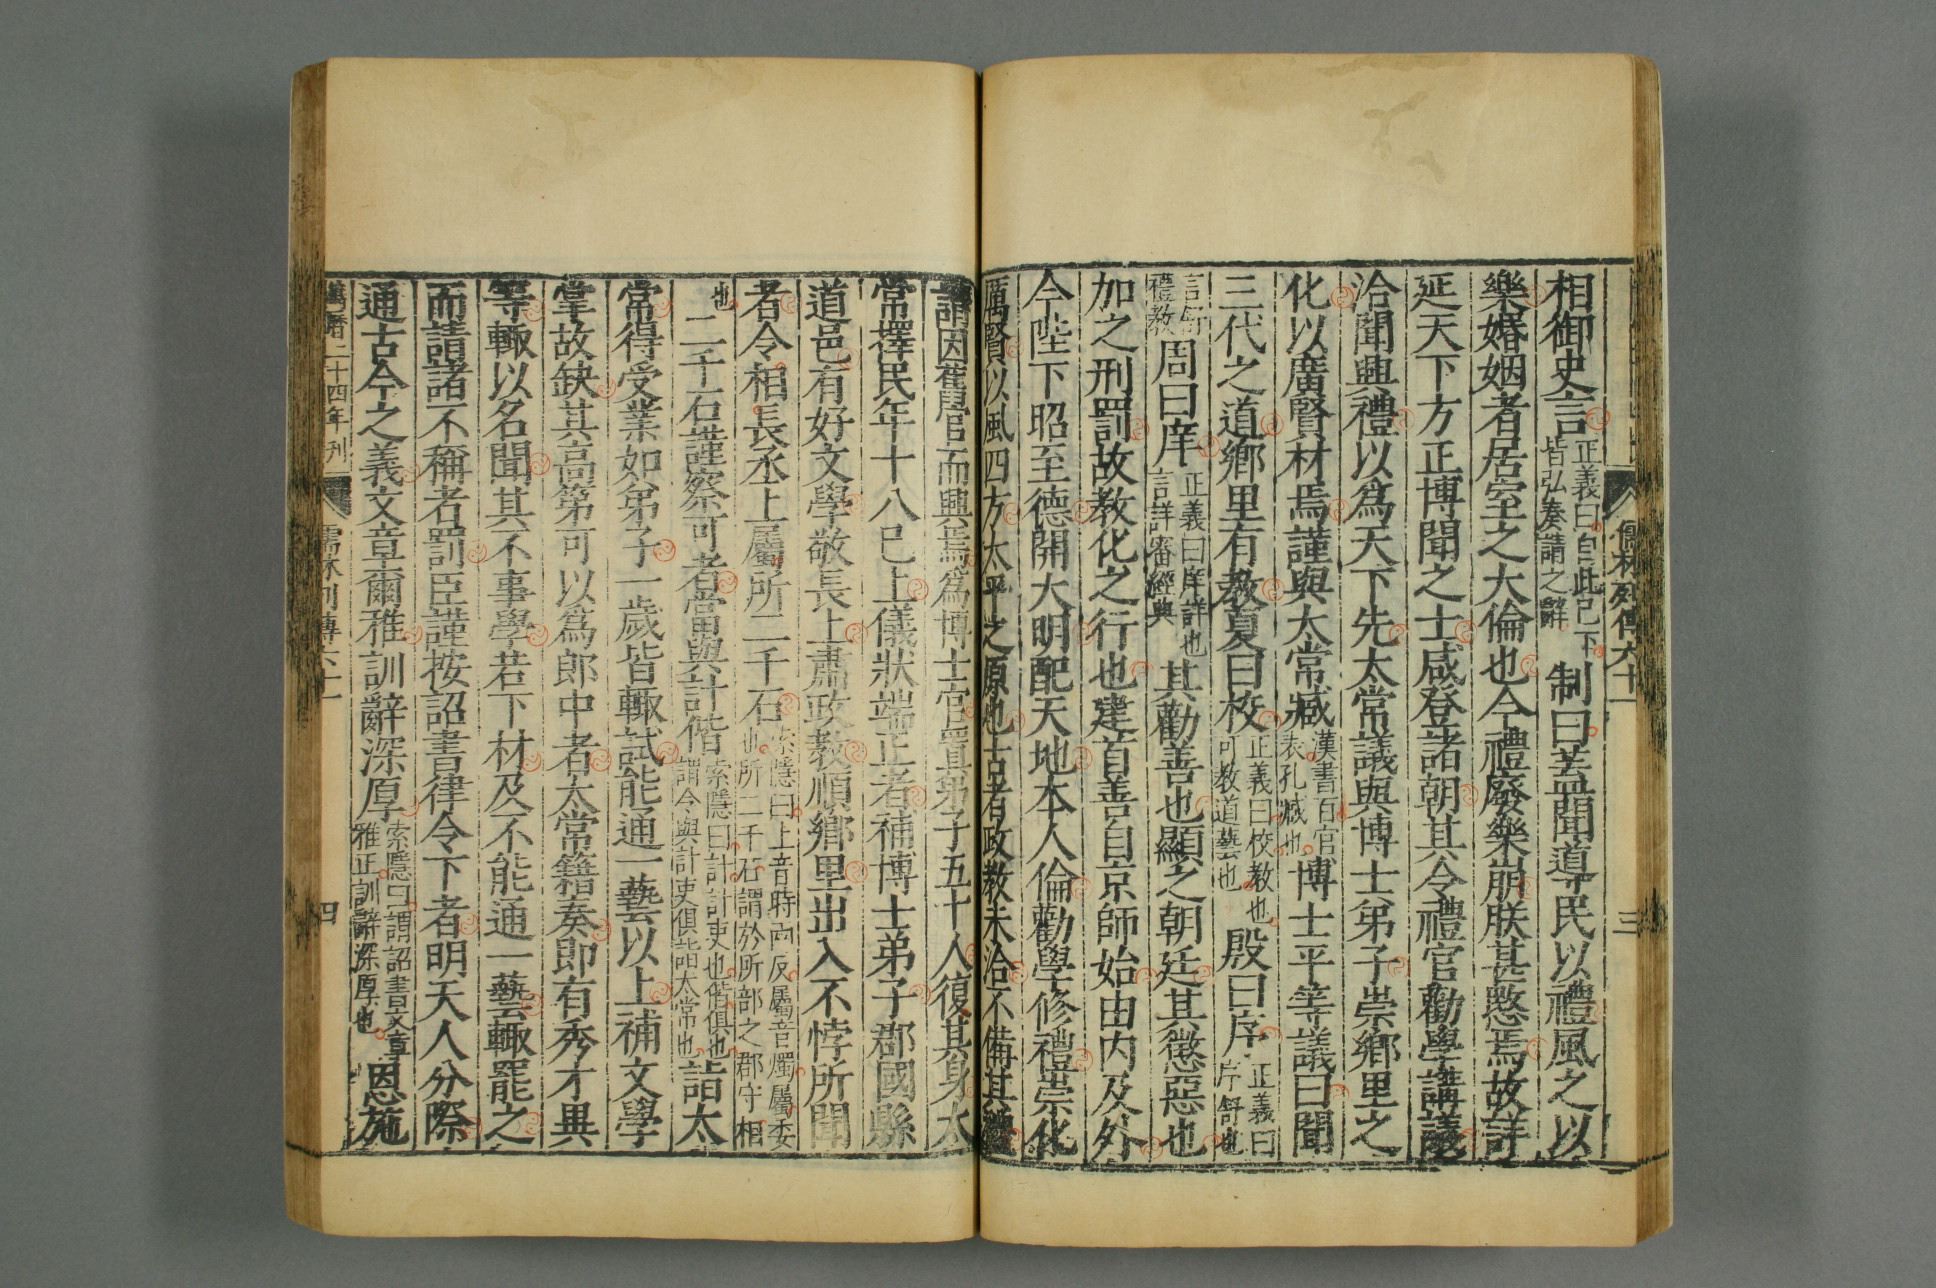 儒林列傳六十一　三
相御史言正義曰自此已下皆弘奏請之辭制曰蓋聞導民以禮風之以
樂婚姻者居室之大倫也今禮廢樂崩朕甚愍焉故詳
延天下方正博聞之士咸登諸朝其令禮官勸學講議
洽聞興禮以爲天下先太常議與博士弟子崇鄉里之
化以廣賢材焉謹與太常臧漢書百官表孔臧也博士平等議曰聞
三代之道鄉里有教夏曰校正義曰校教也可教道藝也殷曰序正義曰序舒也
言舒禮教周曰庠正義曰庠詳也言詳審經典其勸善也顯之朝廷其懲惡也
加之刑罰故教化之行也建首善自京師始由内及外
今陛下昭至德開大明配天地本人倫勸學修禮崇化
厲賢以風四方太平之原也古者政教未洽不備其禮
請因舊官而興焉爲博士官置弟子五十人復其身太
常擇民年十八已上儀狀端正者補博士弟子郡國縣
道邑有好文學敬長上肅政教順鄉里出入不悖所聞
者令相長丞上屬所二千石索隱曰上音時兩反屬音燭屬委也所二千石謂於所部之郡守相
也二千石謹察可者當與計偕索隱曰計計吏也偕俱也謂令與計吏俱詣太常也詣太
常得受業如弟子一歲皆輒試能通一藝以上補文學
掌故缺其高第可以爲郎中者太常籍奏即有秀才異
等輒以名聞其不事學若下材及不能通一藝輒罷之
而請諸不稱者罰臣謹按詔書律令下者明天人分際
通古今之義文章爾雅訓辭深厚索隱曰謂詔書文章雅正訓辭深厚也恩施
萬曆二十四年刊　儒林列傳六十一　四